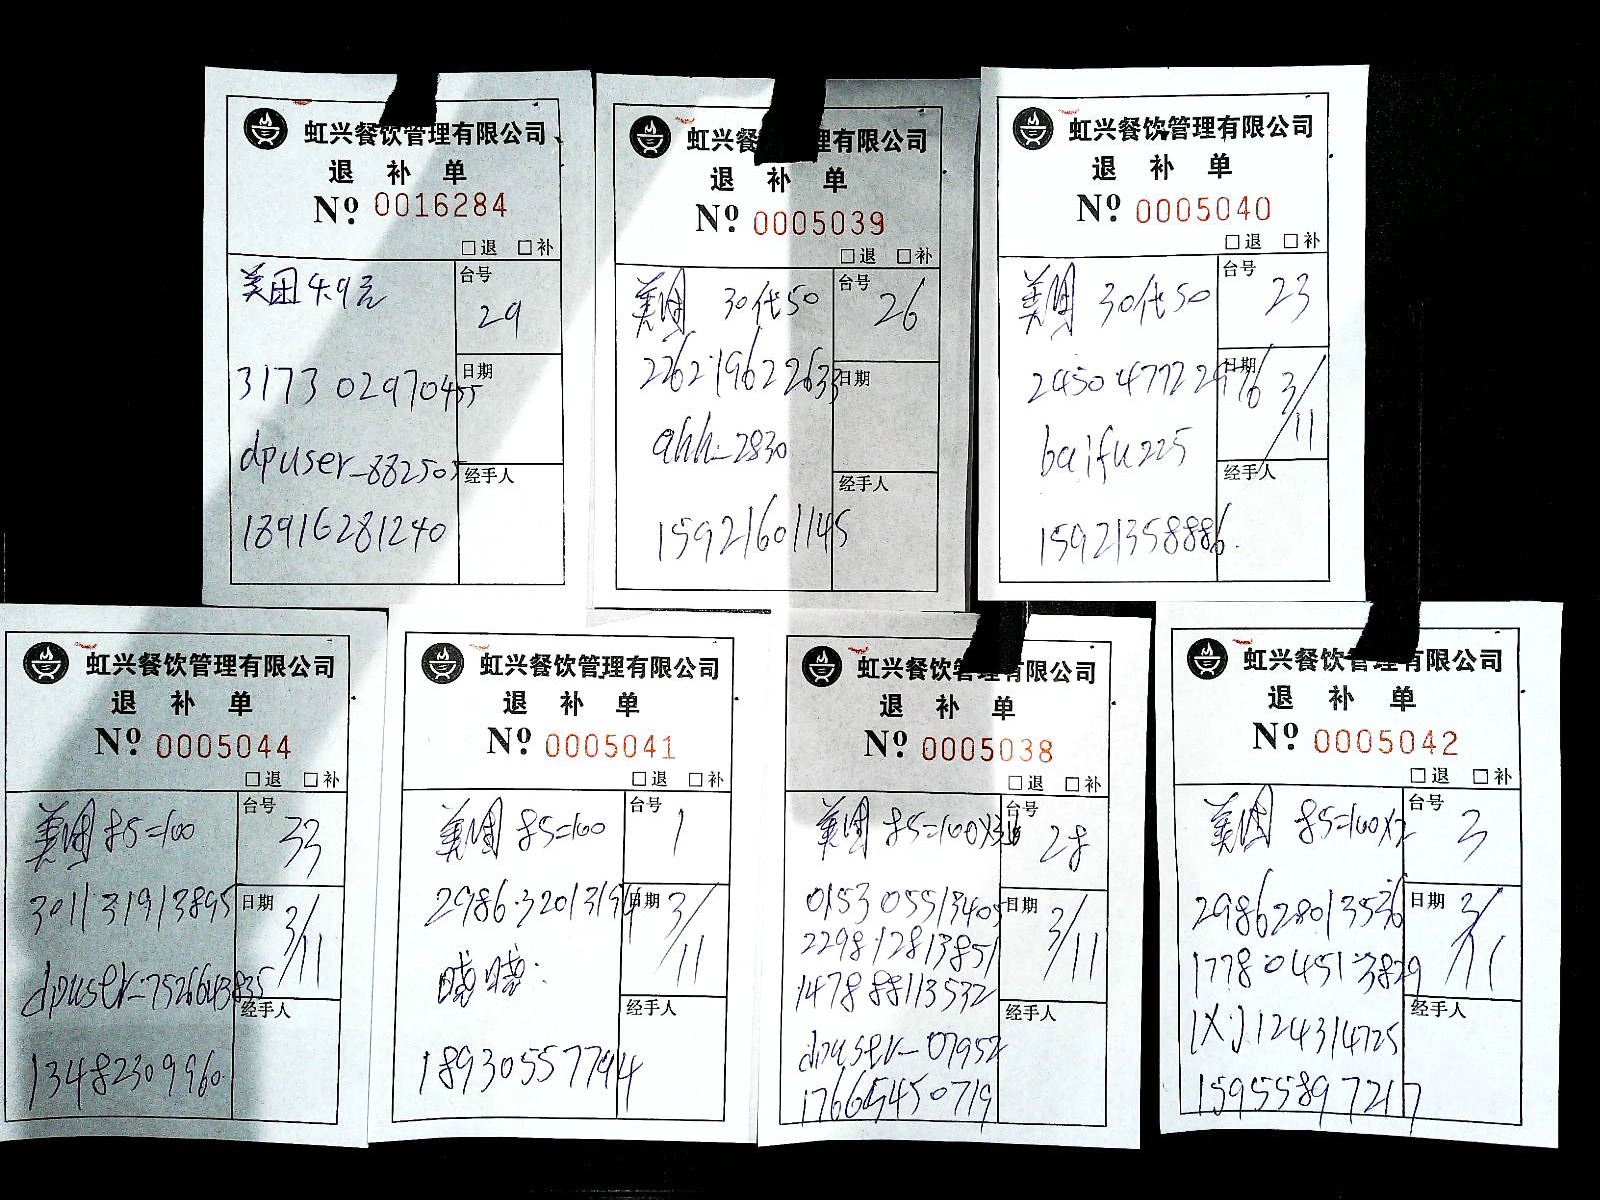 虹兴餐饮管理有限公司
退 补 单
Nº 0016284
□退 □补
美团4.9元
台号
29
317302970455
日期
dpuser_882505
经手人
18916281240
虹兴餐 理有限公司
退 补 单
Nº 0005039
□退 □补
美团 30代50
台号
26
226219622633
日期
ahh_2830
经手人
15921601145
虹兴餐饮管理有限公司
退 补 单
Nº 0005040
□退 □补
美团 30代50
台号
23
日期
3/11
baifu225
经手人
15921358886
虹兴餐饮管理有限公司
退 补 单
Nº 0005044
□退 □补
美团 85=100
台号
33
301131913895
日期
3/11
经手人
13482309960
虹兴餐饮管理有限公司
退 补 单
Nº 0005041
□退 □补
美团 85=100
台号
1
日期
3/11
经手人
18930557794
虹兴餐饮管理有限公司
退 补 单
Nº 0005038
□退 □补
美团
台号
28
015305513405
日期
3/11
229812813851
147888113532
dpuser_07952
经手人
虹兴餐饮管理有限公司
退 补 单
Nº 0005042
□退 □补
美团 85=100X2
台号
3
298628013536
日期
3/11
177804513829
经手人
15955897217